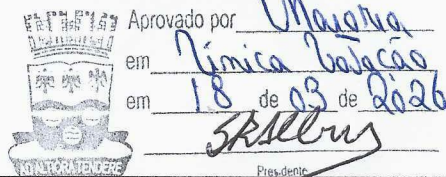 Aprovado por Maioria
em Única Votação
em 18 de 03 de 2026
Presidente
AD ALTIORA TENDERE